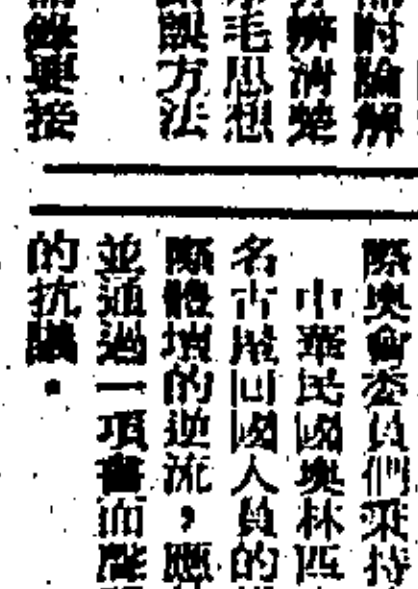 討論解
辨清楚
毛思想
方法
要接
際奧會委員們秉持
中華民國奧林匹
名古屋回國人員的
際體壇的逆流，應
並通過一項書面聲
的抗議。